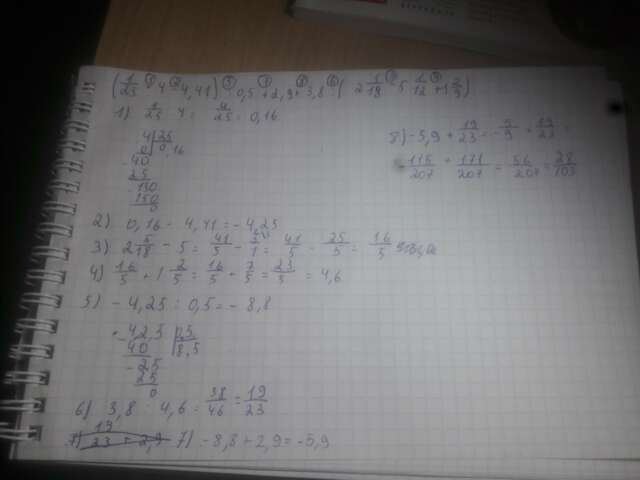 (1/25 · 4 - 4,41) : 0,5 + 2,9 + 3,8 : (2 5/18 - 5 1/12 + 1 2/9)
1) 1/25 · 4 = 4/25 = 0,16
4 | 25
0 | 0,16
- 40
25
- 150
150
0
2) 0,16 - 4,41 = - 4,25
3) 2 5/18 - 5 = 41/5 - 5/1 = 41/5 - 25/5 = 16/5
4) 16/5 + 1 2/5 = 16/5 + 7/5 = 23/5 = 4,6
5) - 4,25 : 0,5 = - 8,8
- 42,5 | 25
40 | 8,5
- 25
25
0
6) 3,8 : 4,6 = 38/46 = 19/23
7) 19/23 + 2,9 7) -8,8 + 2,9 = -5,9
8) -5,9 + 19/23 = - 5/9 + 19/23 =
- 115/207 + 171/207 = 56/207 = 28/103